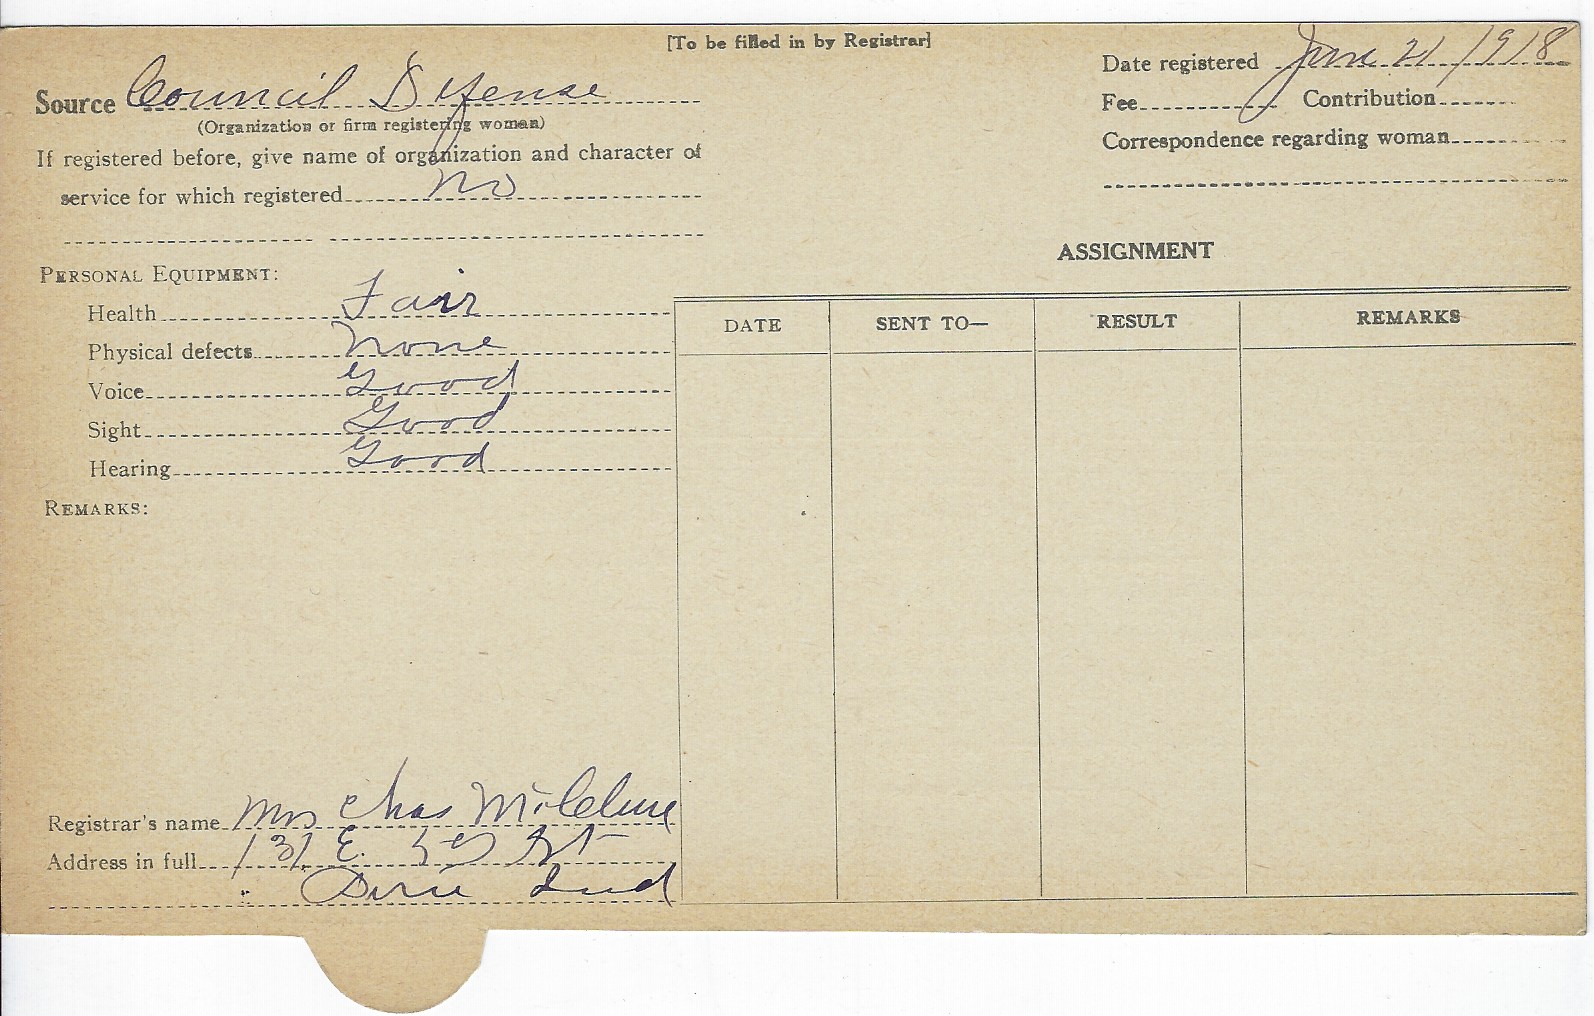 [To be filled in by Registrar]
Source Council Defense
(Organization or firm registering woman)
If registered before, give name of organization and character of
service for which registered No
PERSONAL EQUIPMENT:
Health Fair
Physical defects None
Voice Good
Sight Good
Hearing Good
REMARKS:
Registrar's name Mrs Chas McClure
Address in full 131 E. St
Peru Ind
Date registered June 21 1918
Fee Contribution
Correspondence regarding woman
ASSIGNMENT
DATE SENT TO— RESULT REMARKS